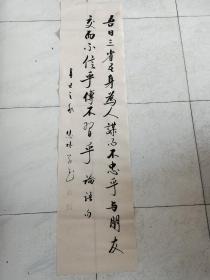 吾日三省吾身為人謀而不忠乎與朋友
交而不信乎傳不習乎 論語句